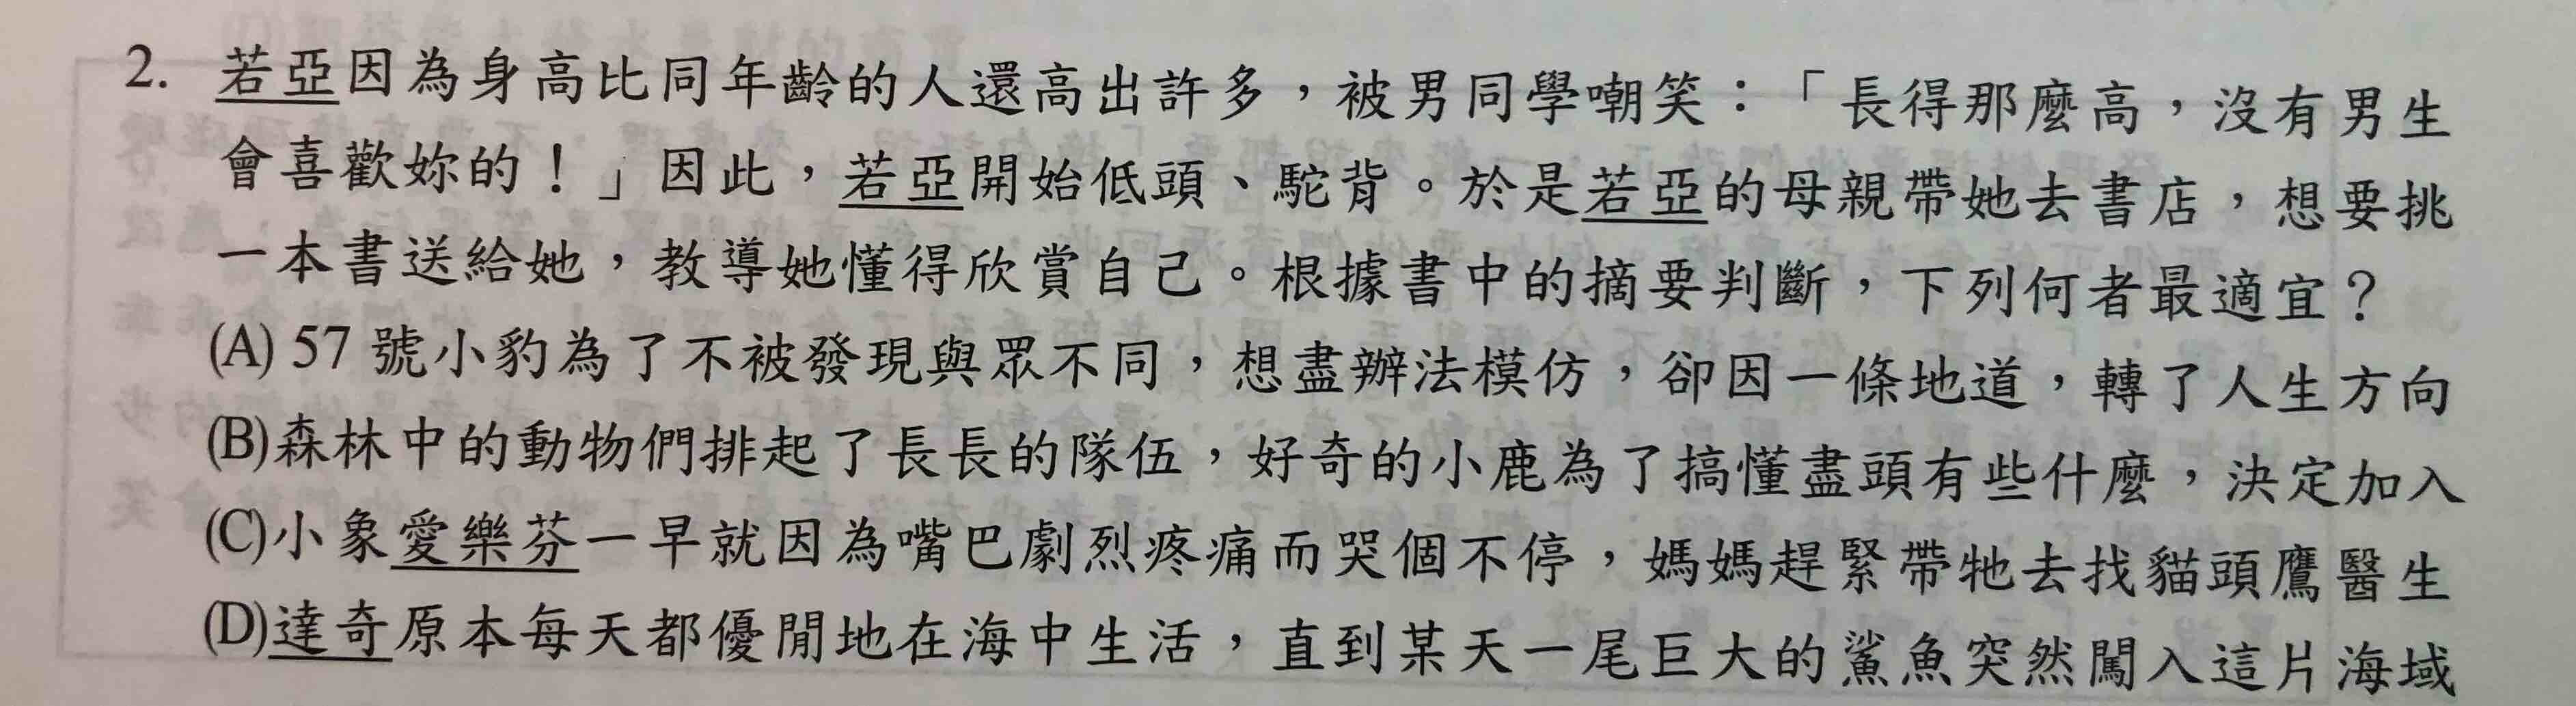 2. 若亞因為身高比同年齡的人還高出許多，被男同學嘲笑：「長得那麼高，沒有男生
會喜歡妳的！」因此，若亞開始低頭、駝背。於是若亞的母親帶她去書店，想要挑
一本書送給她，教導她懂得欣賞自己。根據書中的摘要判斷，下列何者最適宜？
(A) 57 號小豹為了不被發現與眾不同，想盡辦法模仿，卻因一條地道，轉了人生方向
(B)森林中的動物們排起了長長的隊伍，好奇的小鹿為了搞懂盡頭有些什麼，決定加入
(C)小象愛樂芬一早就因為嘴巴劇烈疼痛而哭個不停，媽媽趕緊帶牠去找貓頭鷹醫生
(D)達奇原本每天都優閒地在海中生活，直到某天一尾巨大的鯊魚突然闖入這片海域